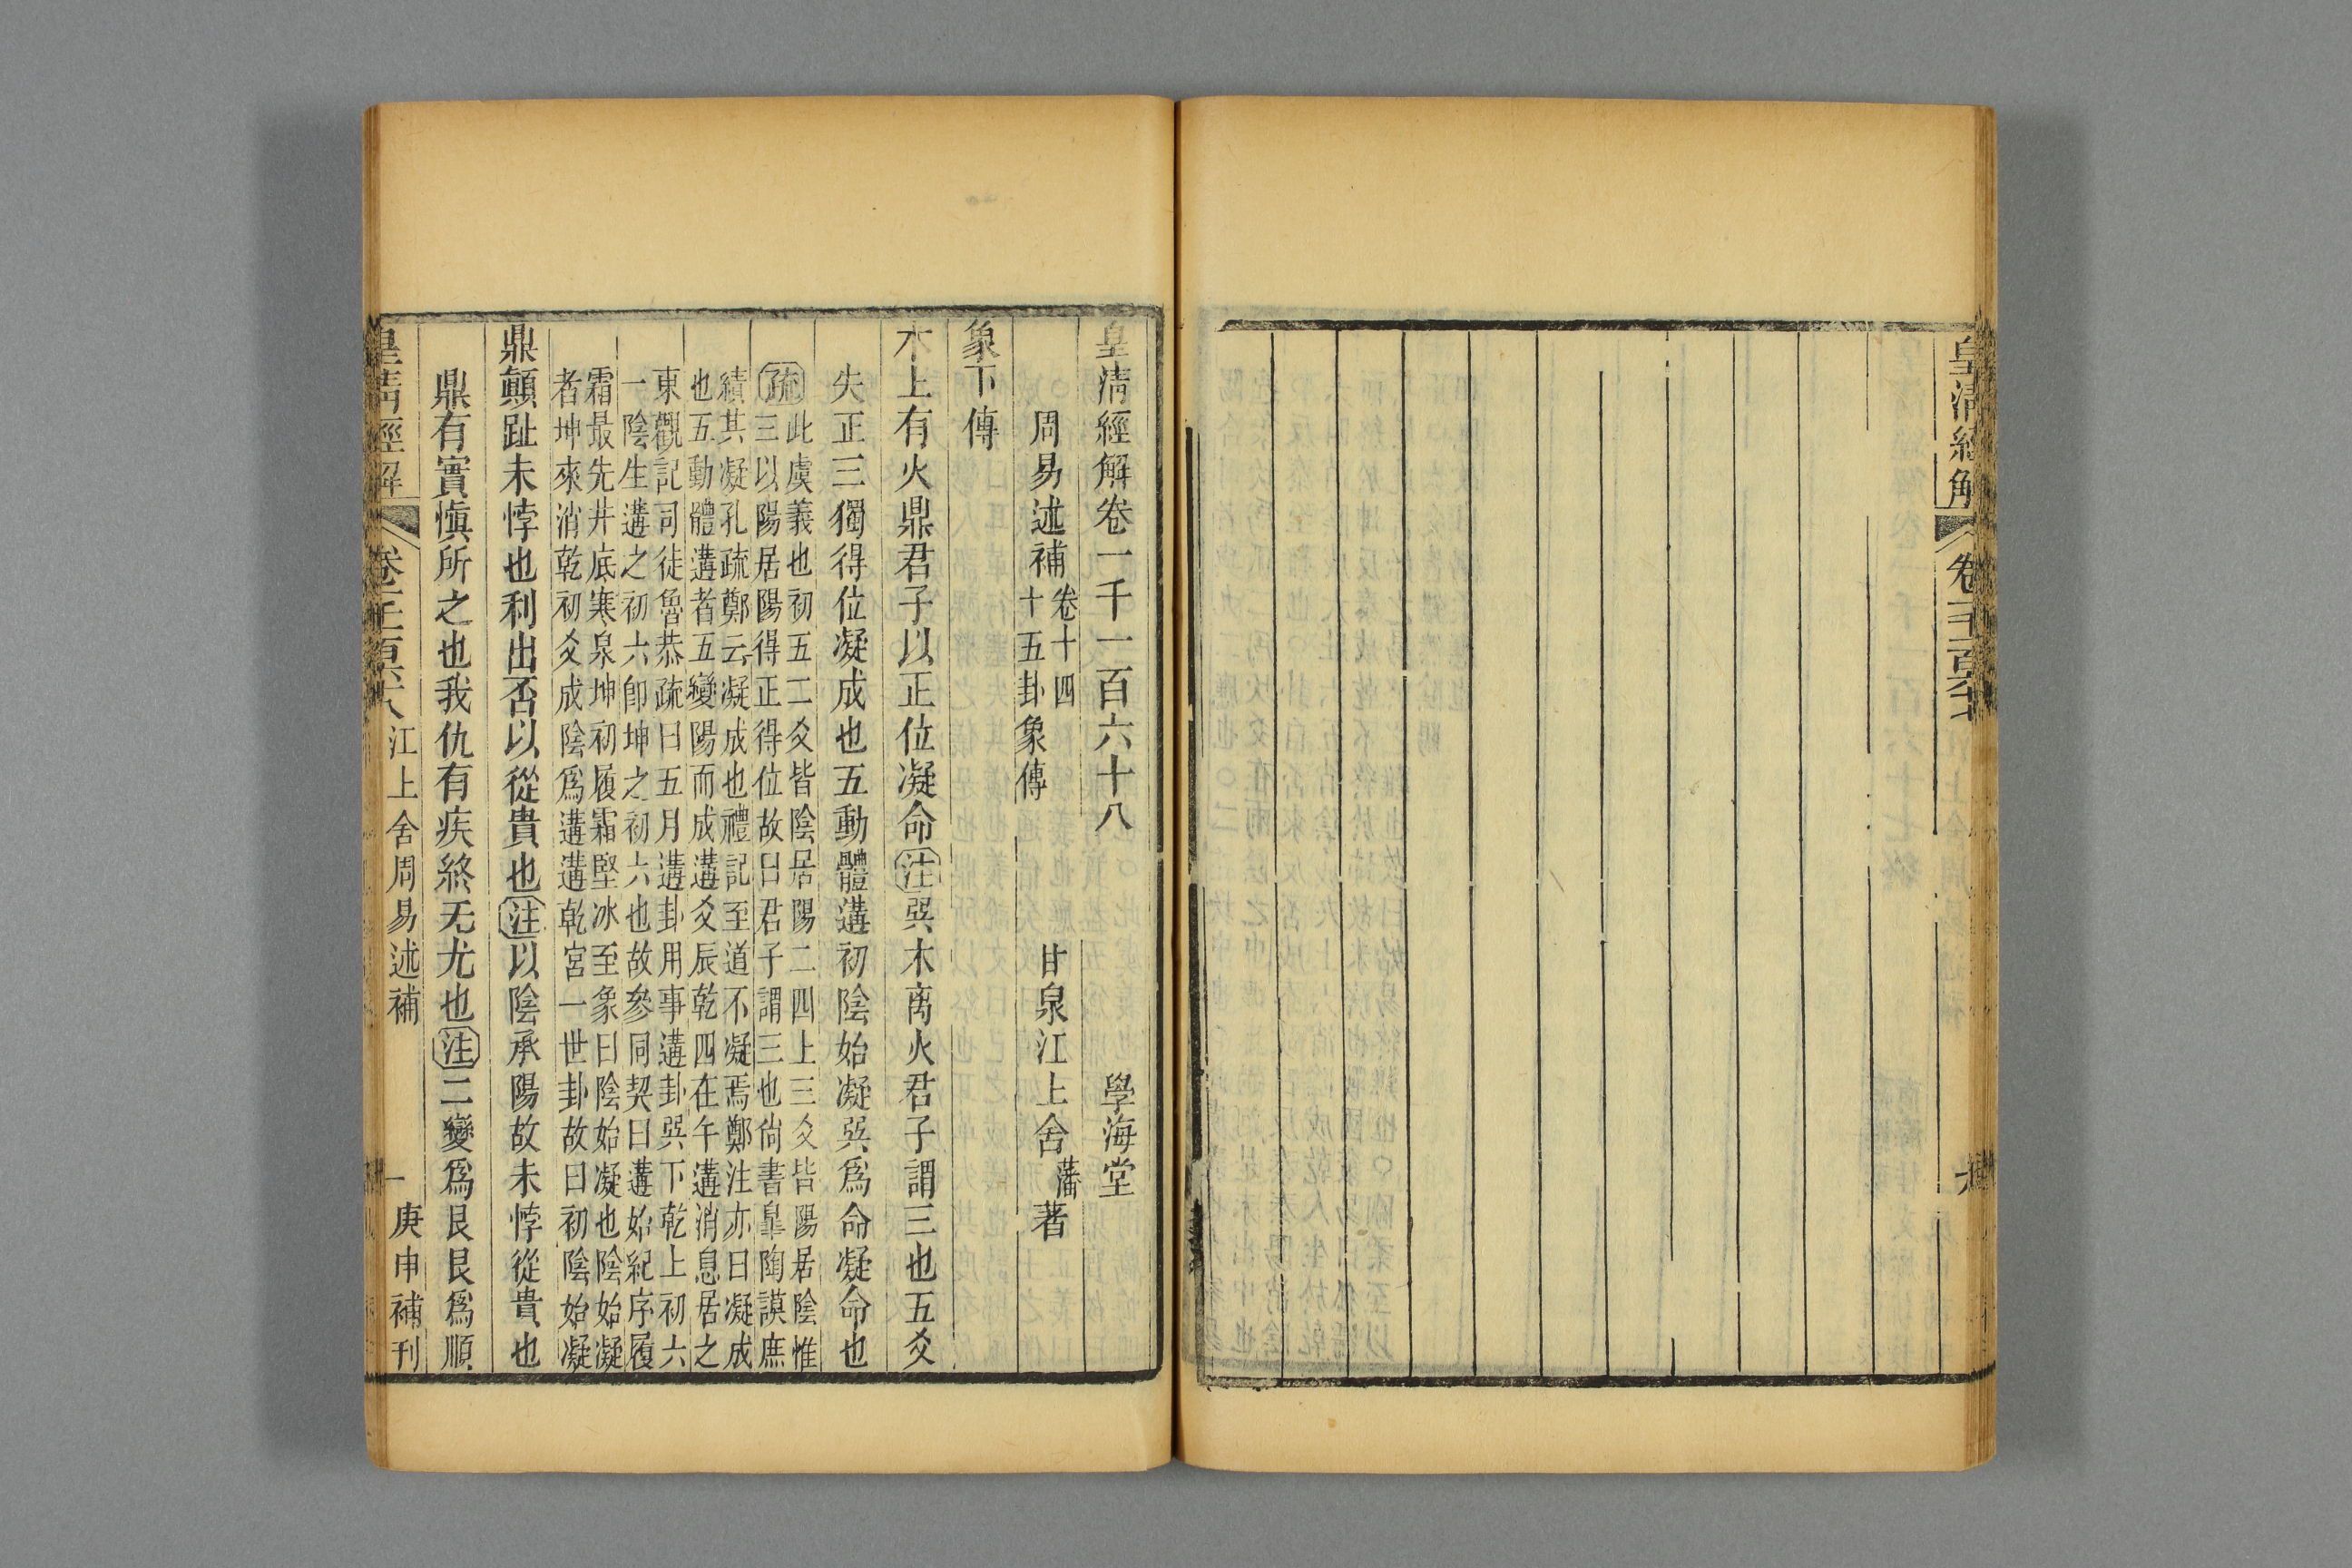 皇清經解
皇清經解卷一千一百六十八
學海堂
周易述補
卷十四
十五卦象傳
甘泉江上舍
藩
著
象下傳
木上有火鼎君子以正位凝命注巽木离火君子謂三也五爻
失正三獨得位凝成也五動體遘初陰始凝巽爲命凝命也
疏此虞義也初五二爻皆陰居陽二四上三爻皆陽居陰惟
三以陽居陽得正得位故曰君子謂三也尙書臯陶謨庶
績其凝孔疏鄭云凝成也禮記至道不凝焉鄭注亦曰凝成
也五動體遘者五變陽而成遘遘爻辰乾四在午遘消息居之
東觀記司徒魯恭疏曰五月遘卦用事遘卦巽下乾上初六
一陰生遘之初六卽坤之初六也故參同契曰遘始紀序履
霜最先井底寒泉坤初履霜堅冰至象曰陰始凝也陰始凝
者坤來消乾初爻成陰爲遘遘乾宮一世卦故曰初陰始凝
鼎顚趾未悖也利出否以從貴也注以陰承陽故未悖從貴也
鼎有實愼所之也我仇有疾終无尤也注二變爲艮艮爲順
皇清經解
江上舍周易述補
一
庚申補刊